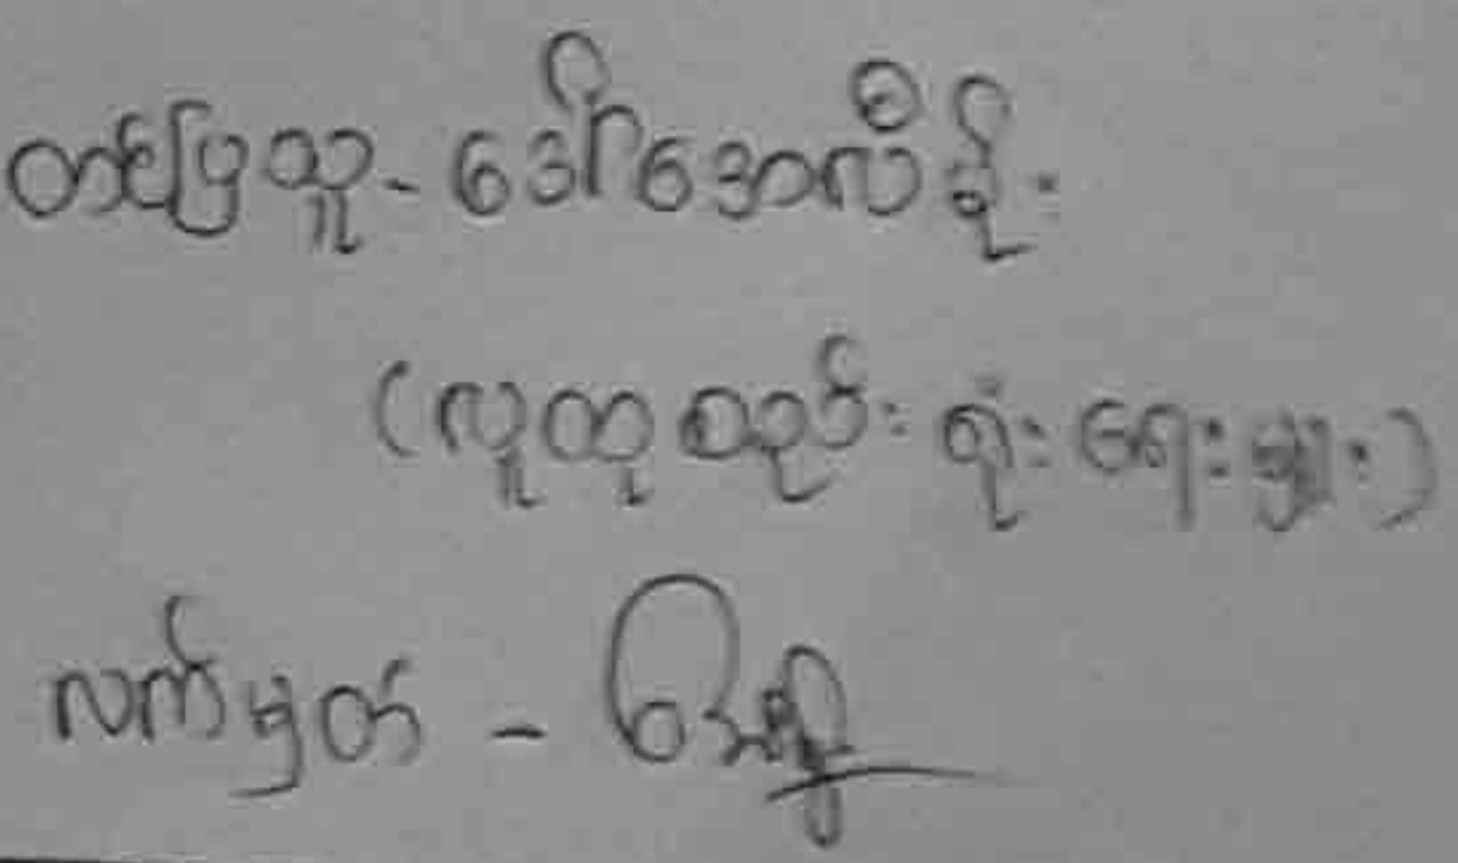 တင်ပြသူ - ဒေါ်အေးလဲ့မို့
(လူထုစည်းရုံးရေးမှူး)
လက်မှတ် -